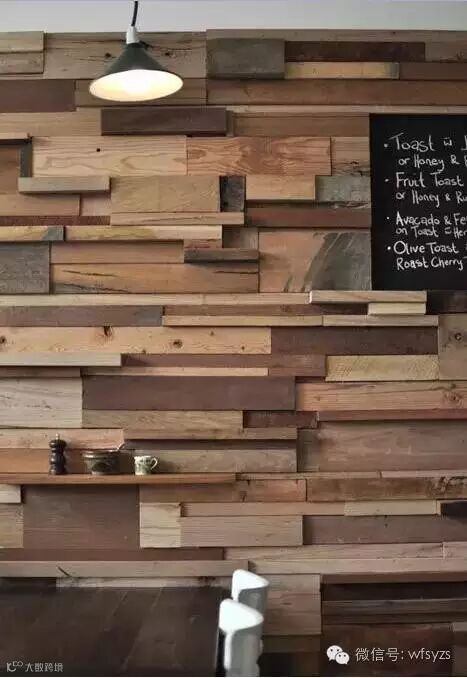 • Toast w J
or Honey &
• Fruit Toast
or Honey & Ri
• Avacado & Fe
on Toast
• Olive Toast
Roast Cherry T
微信号: wfsyzs
大数跨境